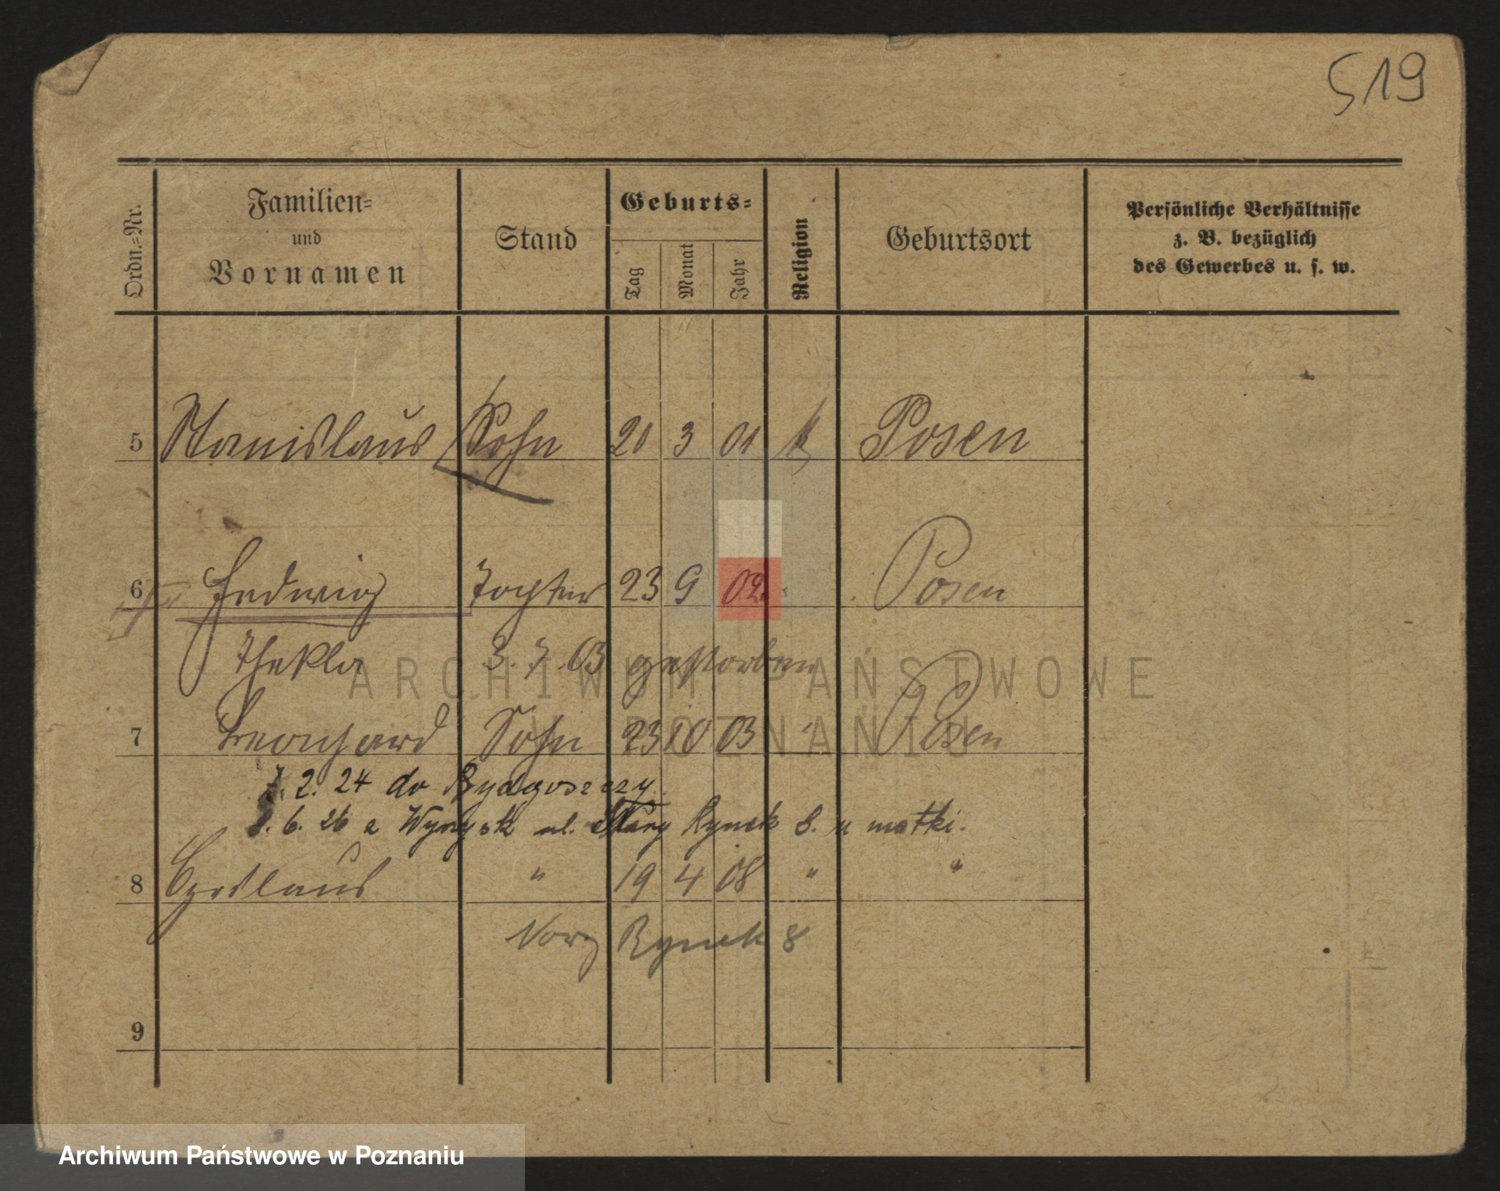 519
Ordn.=Nr.
Familien=
und
Vornamen
Stand
Geburts=
Tag
Monat
Jahr
Religion
Geburtsort
Persönliche Verhältnisse
z. B. bezüglich
des Gewerbes u. s. w.
5 Stanislaus Sohn 20 3 01 k Posen
6 Hedwig Tochter 23 9 02 Posen
Thekla 3. 7. 03 gestorben
7 Leonhard Sohn 23 10 03 " Posen
2. 24 do Bydgoszczy
6. 26 z Wyrzysk ul. Stary Rynek 8. u matki.
8 " 19 4 08 " "
Rynek 8
9
ARCHIWUM PAŃSTWOWE
W POZNANIU
Archiwum Państwowe w Poznaniu